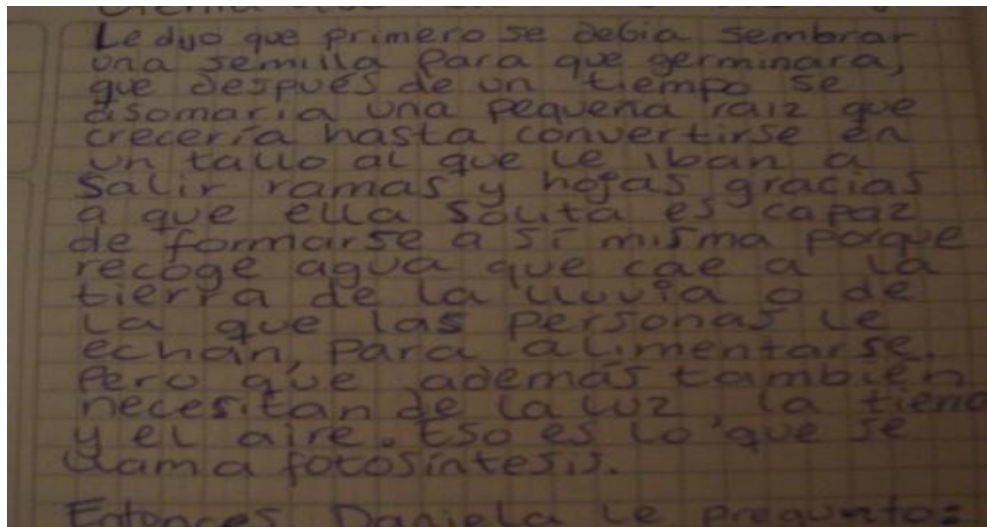 Le dijo que primero se debia sembrar
una semilla para que germinara,
que después de un tiempo se
asomaria una pequeña raiz que
crecería hasta convertirse en
un tallo al que le iban a
salir ramas y hojas gracias
a que ella solita es capaz
de formarse a sí misma porque
recoge agua que cae a la
tierra de la lluvia o de
la que las personas le
echan, para alimentarse.
Pero que además también
necesitan de la luz, la
y el aire. Eso es lo que se
llama fotosíntesis.
Entonces Daniela le pregunto: